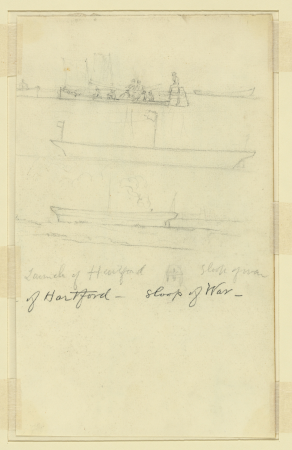 Launch of Hartford Sloop of war
of Hartford - Sloop of War -